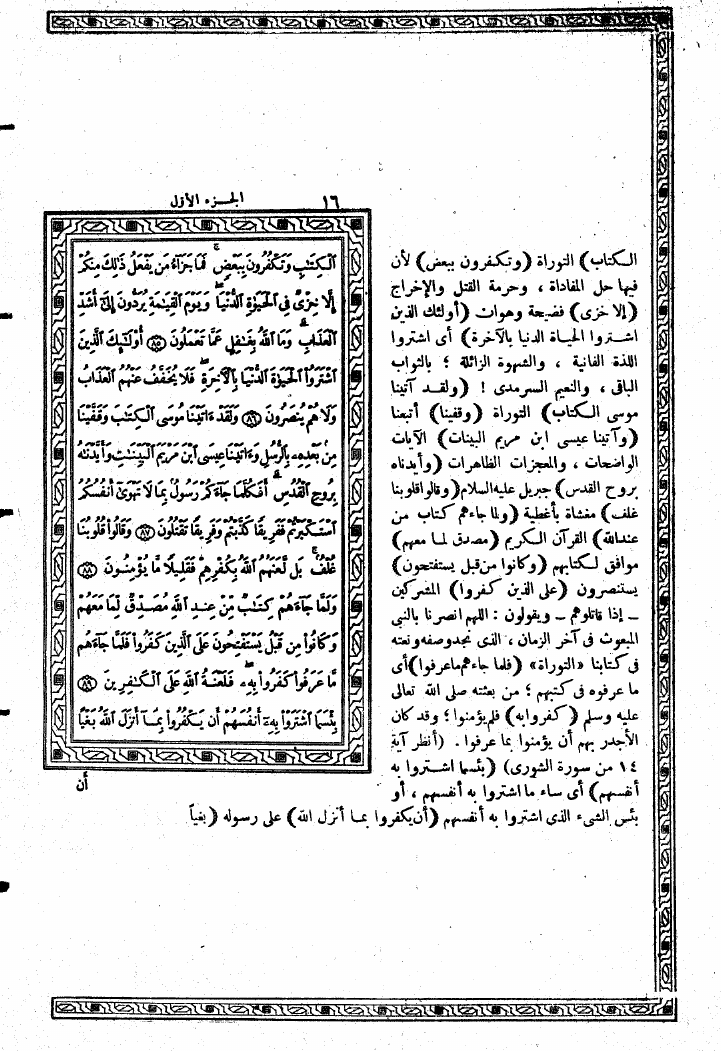 ١٦ الجزء الأول
الكتاب) التوراة (وتكفرون ببعض) لأن
فيها حل المفاداة ، وحرمة القتل والإخراج
(إلا خزى) فضيحة وهوان (أولئك الذين
اشتروا الحياة الدنيا بالآخرة) أى اشتروا
اللذة الفانية ، والشهوة الزائلة ؛ بالثواب
الباقى ، والنعيم السرمدى ! (ولقد آتينا
موسى الكتاب) التوراة (وقفينا) أتبعنا
(وآتينا عيسى ابن مريم البينات) الآيات
الواضحات ، والمعجزات الظاهرات (وأيدناه
بروح القدس) جبريل عليه السلام (وقالوا قلوبنا
غلف) مغشاة بأغطية (ولما جاءهم كتاب من
عند الله) القرآن الكريم (مصدق لما معهم)
موافق لكتابهم (وكانوا من قبل يستفتحون)
يستنصرون (على الذين كفروا) المشركين
ــ إذا قاتلوهم ــ ويقولون : اللهم انصرنا بالنبي
المبعوث فى آخر الزمان ، الذى نجد وصفه ونعته
فى كتابنا «التوراة» (فلما جاءهم ما عرفوا) أى
ما عرفوه فى كتبهم ؛ من بعثته صلى الله تعالى
عليه وسلم (كفروا به) فلم يؤمنوا ؛ وقد كان
الأجدر بهم أن يؤمنوا بما عرفوا . (أنظر آية
١٤ من سورة الشورى) (بئسما اشتروا به
أنفسهم) أى ساء ما اشتروا به أنفسهم ، أو
بئس الشىء الذى اشتروا به أنفسهم (أن يكفروا بما أنزل الله) على رسوله (بغياً
ٱلْكِتَٰبِ وَتَكْفُرُونَ بِبَعْضٍ فَمَا جَزَآءُ مَن يَفْعَلُ ذَٰلِكَ مِنكُمْ
إِلَّا خِزْىٌ فِى ٱلْحَيَوٰةِ ٱلدُّنْيَا وَيَوْمَ ٱلْقِيَٰمَةِ يُرَدُّونَ إِلَىٰٓ أَشَدِّ
ٱلْعَذَابِ وَمَا ٱللَّهُ بِغَٰفِلٍ عَمَّا تَعْمَلُونَ ٨٥ أُو۟لَٰٓئِكَ ٱلَّذِينَ
ٱشْتَرَوُا۟ ٱلْحَيَوٰةَ ٱلدُّنْيَا بِٱلْءَاخِرَةِ فَلَا يُخَفَّفُ عَنْهُمُ ٱلْعَذَابُ
وَلَا هُمْ يُنصَرُونَ ٨٦ وَلَقَدْ ءَاتَيْنَا مُوسَى ٱلْكِتَٰبَ وَقَفَّيْنَا
مِنۢ بَعْدِهِۦ بِٱلرُّسُلِ وَءَاتَيْنَا عِيسَى ٱبْنَ مَرْيَمَ ٱلْبَيِّنَٰتِ وَأَيَّدْنَٰهُ
بِرُوحِ ٱلْقُدُسِ أَفَكُلَّمَا جَآءَكُمْ رَسُولٌۢ بِمَا لَا تَهْوَىٰٓ أَنفُسُكُمُ
ٱسْتَكْبَرْتُمْ فَفَرِيقًا كَذَّبْتُمْ وَفَرِيقًا تَقْتُلُونَ ٨٧ وَقَالُوا۟ قُلُوبُنَا
غُلْفٌۢ بَل لَّعَنَهُمُ ٱللَّهُ بِكُفْرِهِمْ فَقَلِيلًا مَّا يُؤْمِنُونَ ٨٨
وَلَمَّا جَآءَهُمْ كِتَٰبٌ مِّنْ عِندِ ٱللَّهِ مُصَدِّقٌ لِّمَا مَعَهُمْ
وَكَانُوا۟ مِن قَبْلُ يَسْتَفْتِحُونَ عَلَى ٱلَّذِينَ كَفَرُوا۟ فَلَمَّا جَآءَهُم
مَّا عَرَفُوا۟ كَفَرُوا۟ بِهِۦ فَلَعْنَةُ ٱللَّهِ عَلَى ٱلْكَٰفِرِينَ ٨٩
بِئْسَمَا ٱشْتَرَوْا۟ بِهِۦٓ أَنفُسَهُمْ أَن يَكْفُرُوا۟ بِمَآ أَنزَلَ ٱللَّهُ بَغْيًا
أن